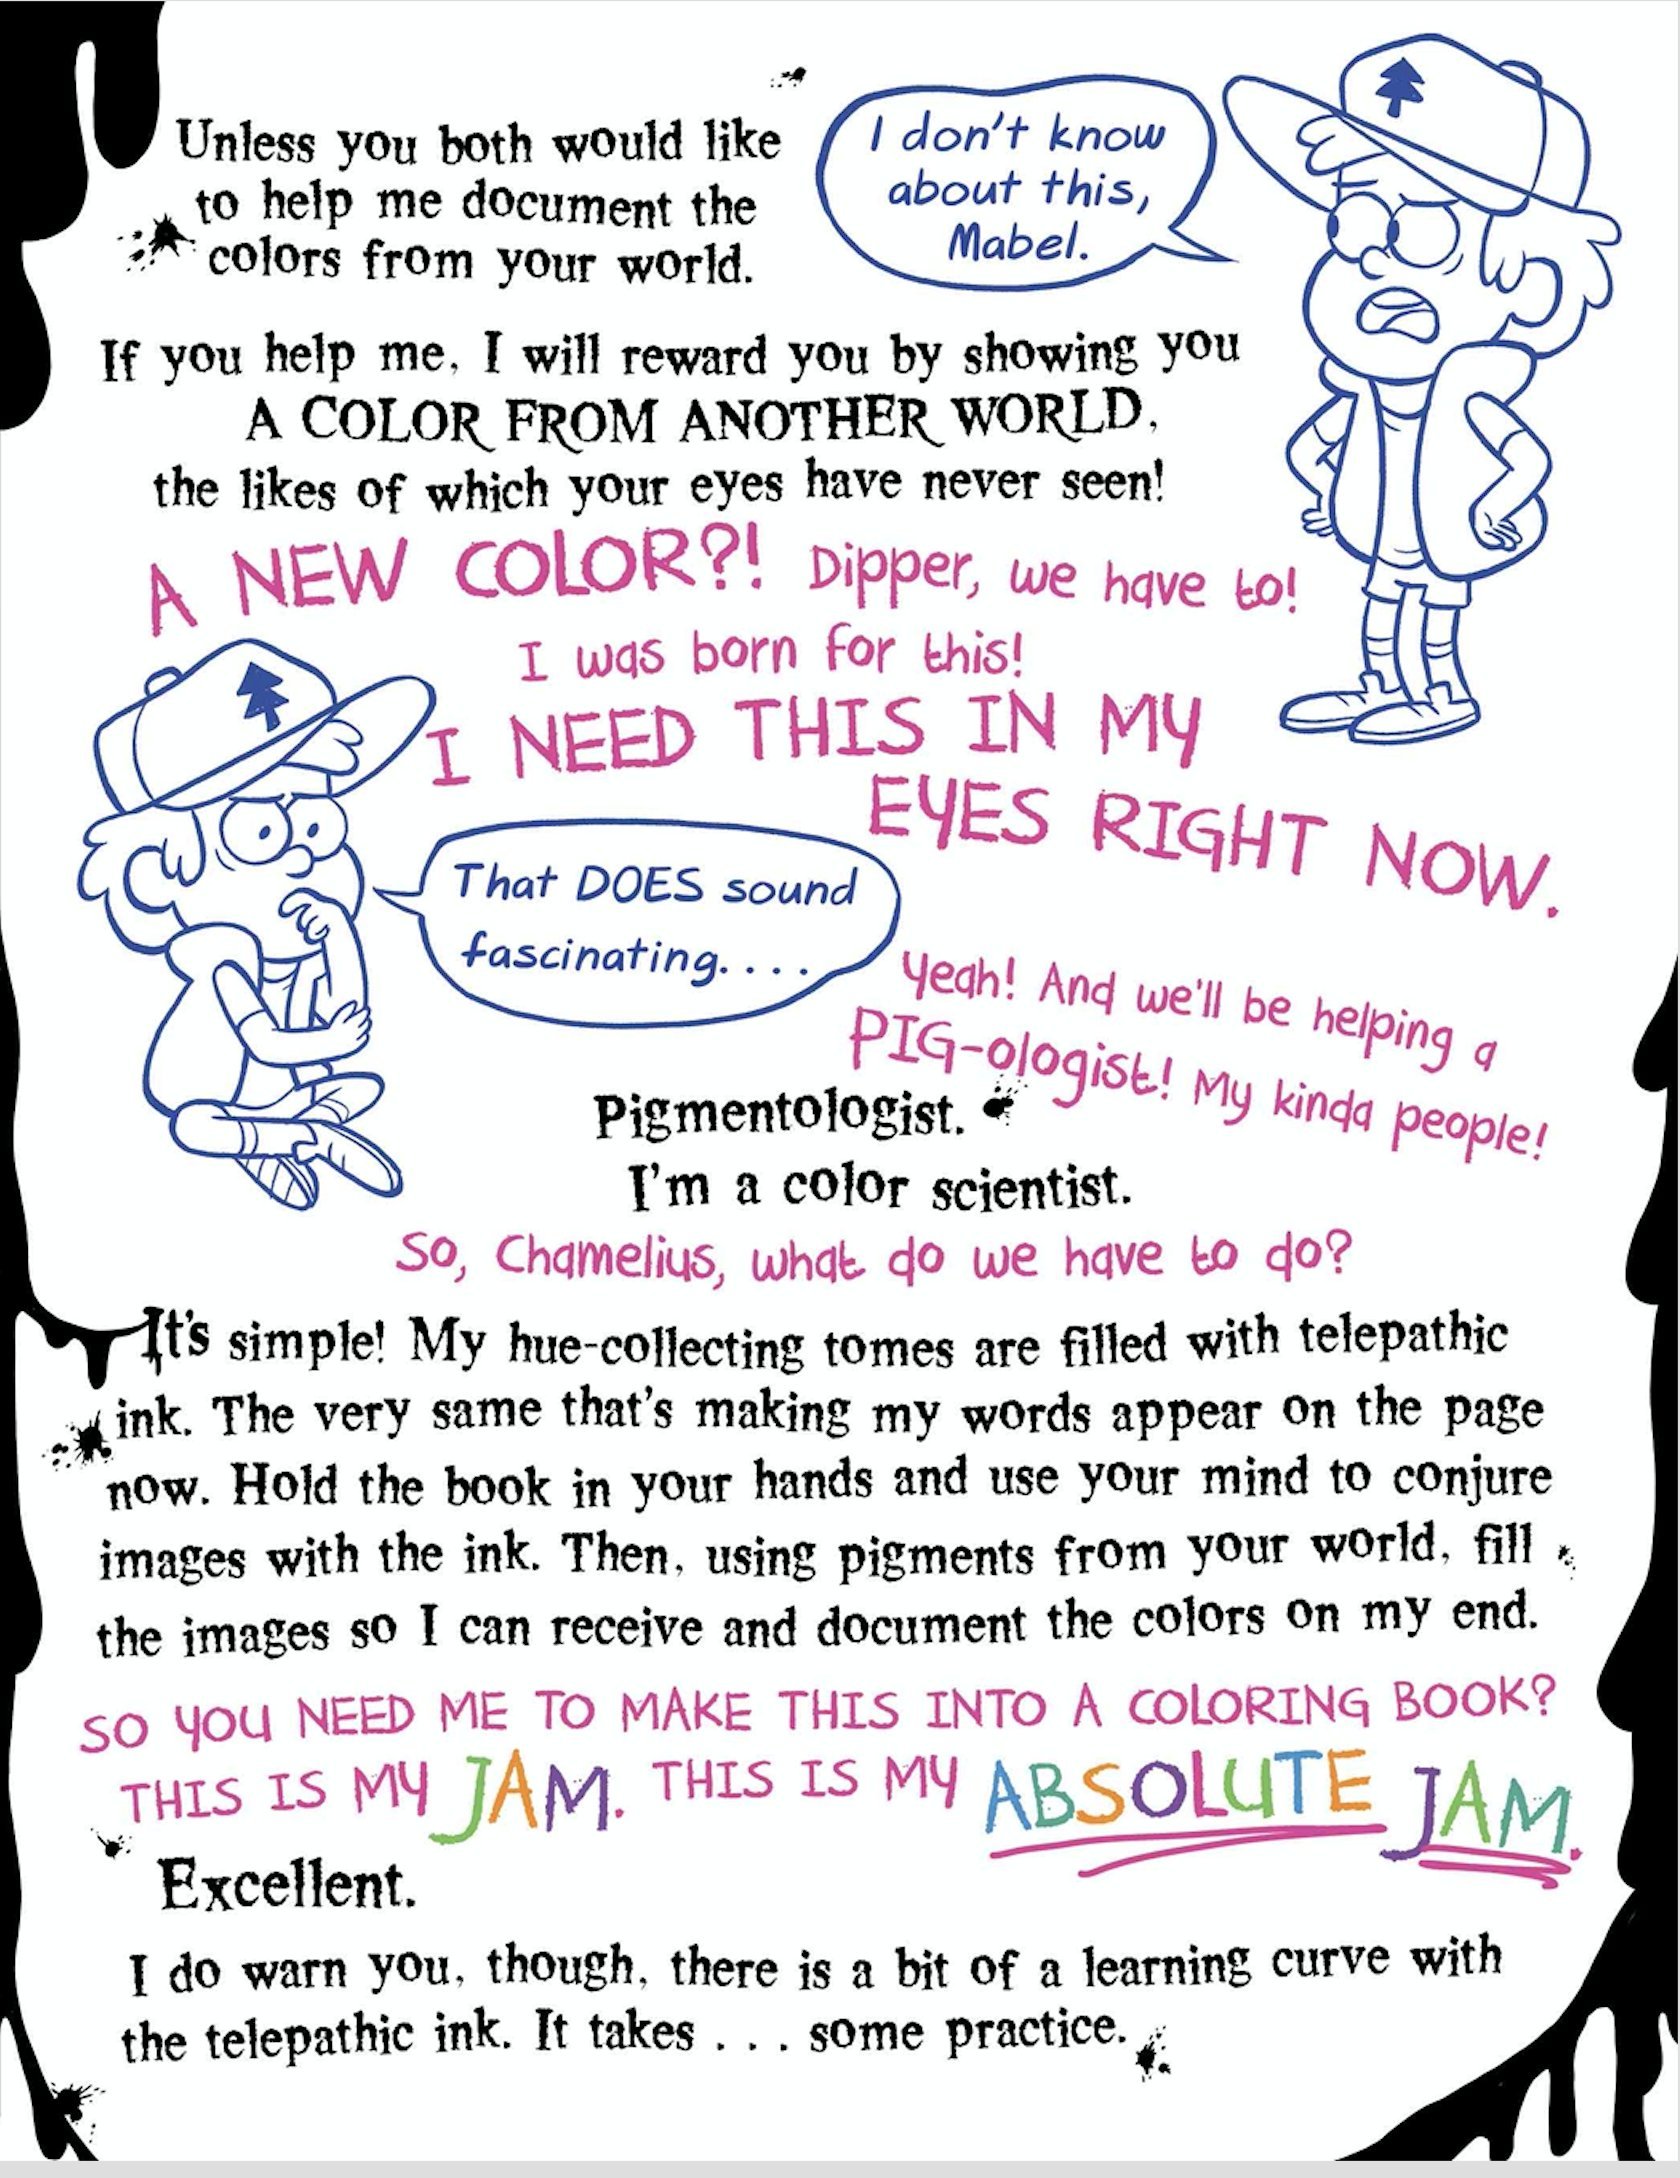 Unless you both would like
to help me document the
colors from your world.
I don't know
about this,
Mabel.
If you help me, I will reward you by showing you
A COLOR FROM ANOTHER WORLD,
the likes of which your eyes have never seen!
A NEW COLOR?! Dipper, we have to!
I was born for this!
I NEED THIS IN MY
EYES RIGHT NOW.
That DOES sound
fascinating. . . .
Yeah! And we'll be helping a
PIG-ologist! My kinda people!
Pigmentologist.
I'm a color scientist.
So, Chamelius, what do we have to do?
It's simple! My hue-collecting tomes are filled with telepathic
ink. The very same that's making my words appear on the page
now. Hold the book in your hands and use your mind to conjure
images with the ink. Then, using pigments from your world, fill
the images so I can receive and document the colors on my end.
SO YOU NEED ME TO MAKE THIS INTO A COLORING BOOK?
THIS IS MY JAM. THIS IS MY ABSOLUTE JAM.
Excellent.
I do warn you, though, there is a bit of a learning curve with
the telepathic ink. It takes . . . some practice.